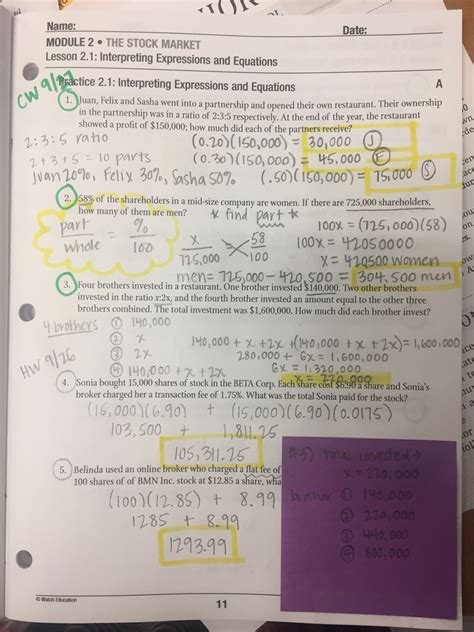 Name:
Date:
MODULE 2 • THE STOCK MARKET
Lesson 2.1: Interpreting Expressions and Equations
CW 9/27
Practice 2.1: Interpreting Expressions and Equations
A
1. Juan, Felix and Sasha went into a partnership and opened their own restaurant. Their ownership
in the partnership was in a ratio of 2:3:5 respectively. At the end of the year, the restaurant
showed a profit of $150,000; how much did each of the partners receive?
2:3:5 ratio
(0.20)(150,000) = 30,000 J
2+3+5 = 10 parts
(0.30)(150,000) = 45,000 F
Juan 20%, Felix 30%, Sasha 50%
(.50)(150,000) = 75,000 S
2. 58% of the shareholders in a mid-size company are women. If there are 725,000 shareholders,
how many of them are men?
* find part *
100x = (725,000)(58)
part
whole
=
%
100
x
725,000
58
100
100x = 42050000
x = 420500 women
men = 725,000 - 420,500 = 304,500 men
3. Four brothers invested in a restaurant. One brother invested $140,000. Two other brothers
invested in the ratio x:2x, and the fourth brother invested an amount equal to the other three
brothers combined. The total investment was $1,600,000. How much did each brother invest?
4 brothers
1 140,000
2 x
3 2x
4 140,000 + x + 2x
140,000 + x + 2x + (140,000 + x + 2x) = 1,600,000
280,000 + 6x = 1,600,000
6x = 1,320,000
x = 220,000
HW 9/26
4. Sonia bought 15,000 shares of stock in the BETA Corp. Each share cost $6.90 a share and Sonia's
broker charged her a transaction fee of 1.75%. What was the total Sonia paid for the stock?
(15,000)(6.90) + (15,000)(6.90)(0.0175)
103,500 + 1,811.25
105,311.25
5. Belinda used an online broker who charged a flat fee of
100 shares of of BMN Inc. stock at $12.85 a share, wha
(100)(12.85) + 8.99
1285 + 8.99
1293.99
#3) total invested →
x = 220,000
brother 1 140,000
2 220,000
3 440,000
4 800,000
© Walch Education
11